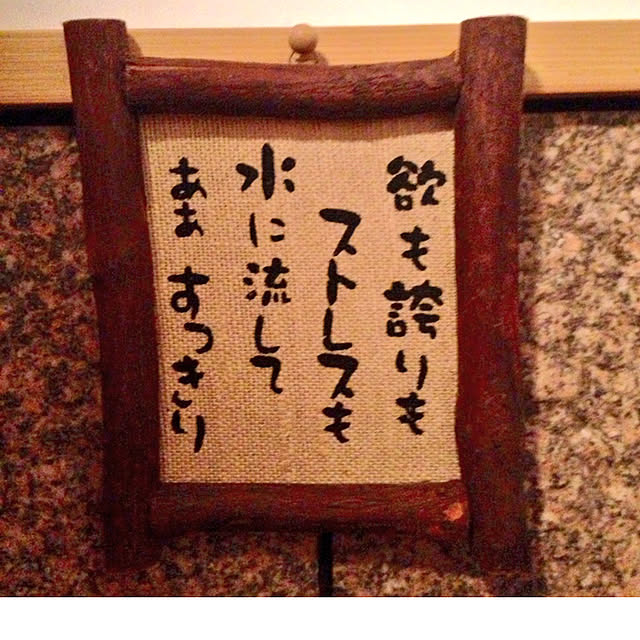 欲も誇りも
ストレスも
水に流して
あぁ すっきり